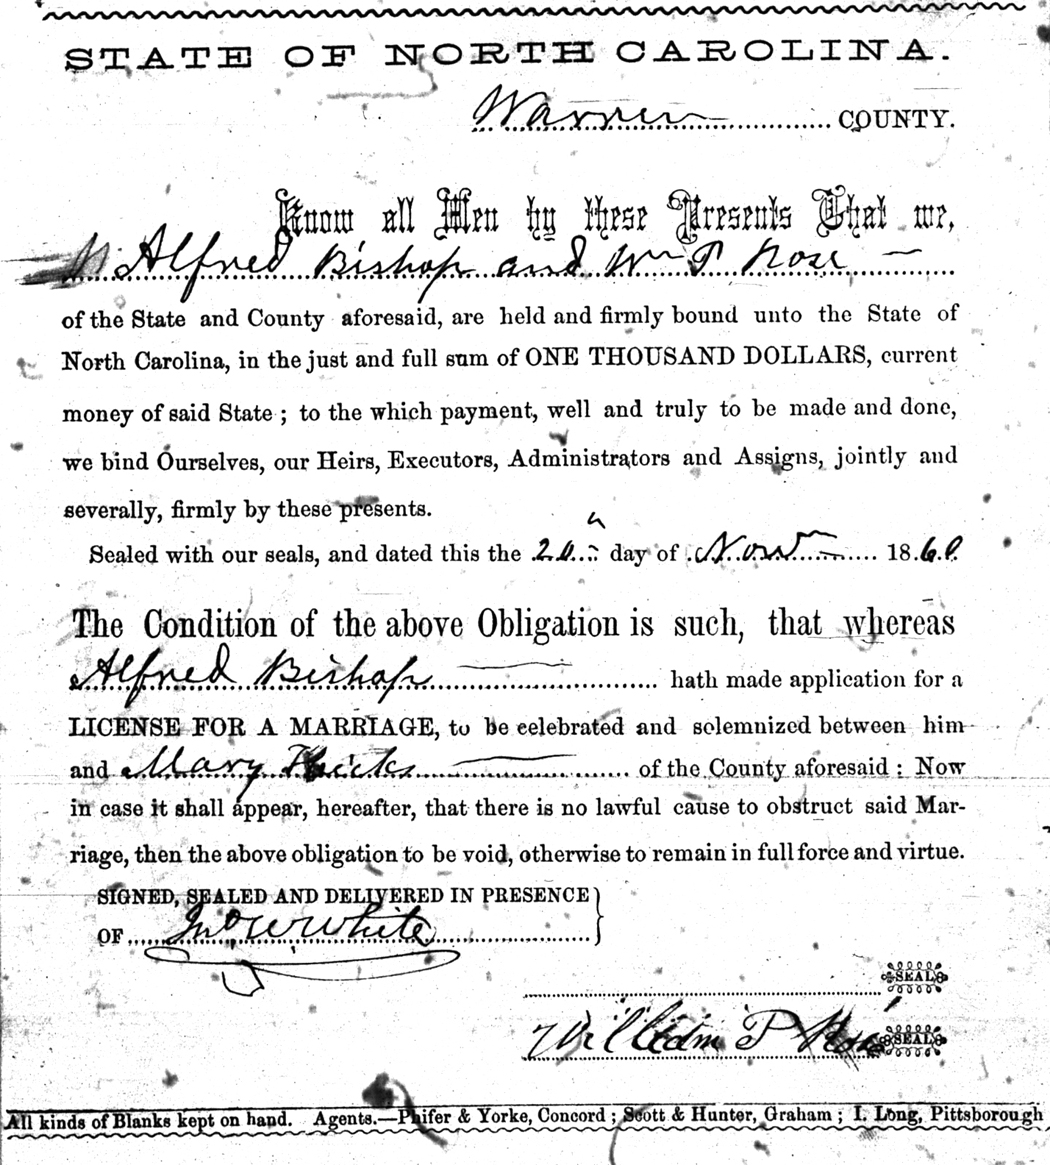 STATE OF NORTH CAROLINA.
Warren COUNTY.
Know all Men by these Presents That we,
Alfred Bishop and Wm P Rose
of the State and County aforesaid, are held and firmly bound unto the State of
North Carolina, in the just and full sum of ONE THOUSAND DOLLARS, current
money of said State ; to the which payment, well and truly to be made and done,
we bind Ourselves, our Heirs, Executors, Administrators and Assigns, jointly and
severally, firmly by these presents.
Sealed with our seals, and dated this the 20 day of Novr 1860
The Condition of the above Obligation is such, that whereas
Alfred Bishop hath made application for a
LICENSE FOR A MARRIAGE, to be celebrated and solemnized between him
and Mary Hicks of the County aforesaid : Now
in case it shall appear, hereafter, that there is no lawful cause to obstruct said Mar-
riage, then the above obligation to be void, otherwise to remain in full force and virtue.
SIGNED, SEALED AND DELIVERED IN PRESENCE
OF Jno W White
SEAL
William P Rose SEAL
All kinds of Blanks kept on hand. Agents.—Phifer & Yorke, Concord ; Scott & Hunter, Graham ; I. Long, Pittsborough